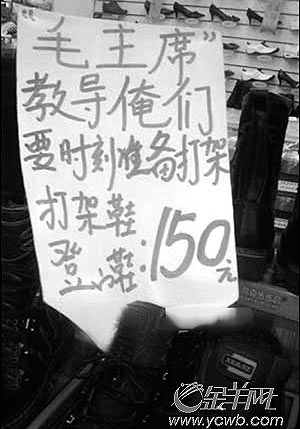 "毛主席"
教导俺们
要时刻准备打架
打架鞋
登山鞋:150元
金羊网
www.ycwb.com